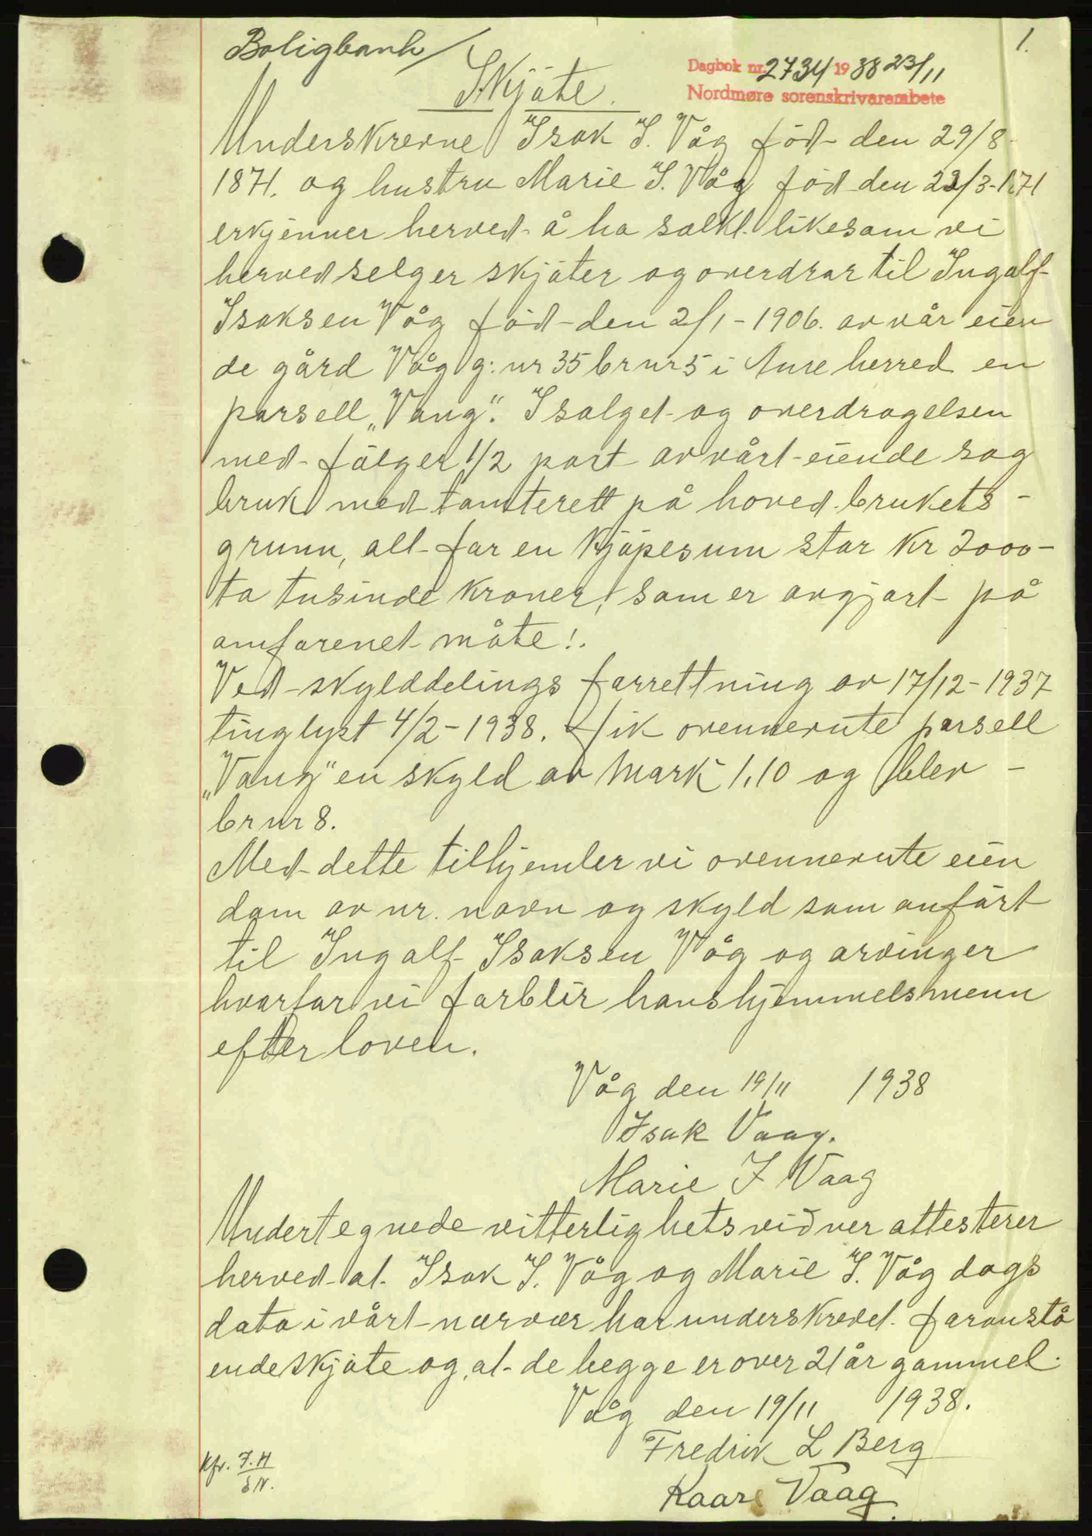 Boligbank
1.
Skjøte.
Dagbok nr. 2734 1938 23/11
Nordmøre sorenskriverembete
Underskrevne Isak I. Våg född den 29/8-
1871. og hustru Marie I. Våg född den 23/3-1871
erkjenner herved å ha solkt likesom vi
herved selger skjøter og overdrar til Ingolf
Isaksen Våg född den 2/1-1906. av vår eien
de gård Våg g: nr 35 br nr 5 i Aure herred en
parsell „Vang". I salget og overdragelsen
med følger 1/2 part av vårt eiende sag
bruk med tomterett på hoved brukets -
grunn, alt for en kjøpesum stor Kr 2000-
to tusinde kroner, som er avgjort på
omforenet måte!.
Ved skylddelings forrettning av 17/12-1937
tinglyst 4/2-1938. fik ovennevnte parsell
„Vang" en skyld av Mark 1,10 og blev -
br nr 8.
Med dette tilhjemler vi ovennevnte eien
dom av nr. navn og skyld som anført
til Ingolf Isaksen Våg og arvinger
hvorfor vi forblir hans hjemmelsmenn
efter loven.
Våg den 19/11 1938
Isak Vaag.
Marie I Vaag
Undertegnede vitterlighetsvidner attesterer
herved at Isak I. Våg og Marie I. Våg dags
dato i vårt nærvær har underskrevet foranstå
ende skjøte og at de begge er over 21 år gammel.
Våg den 19/11 1938.
Fredrik L Berg
Kaare Vaag
Kfr.